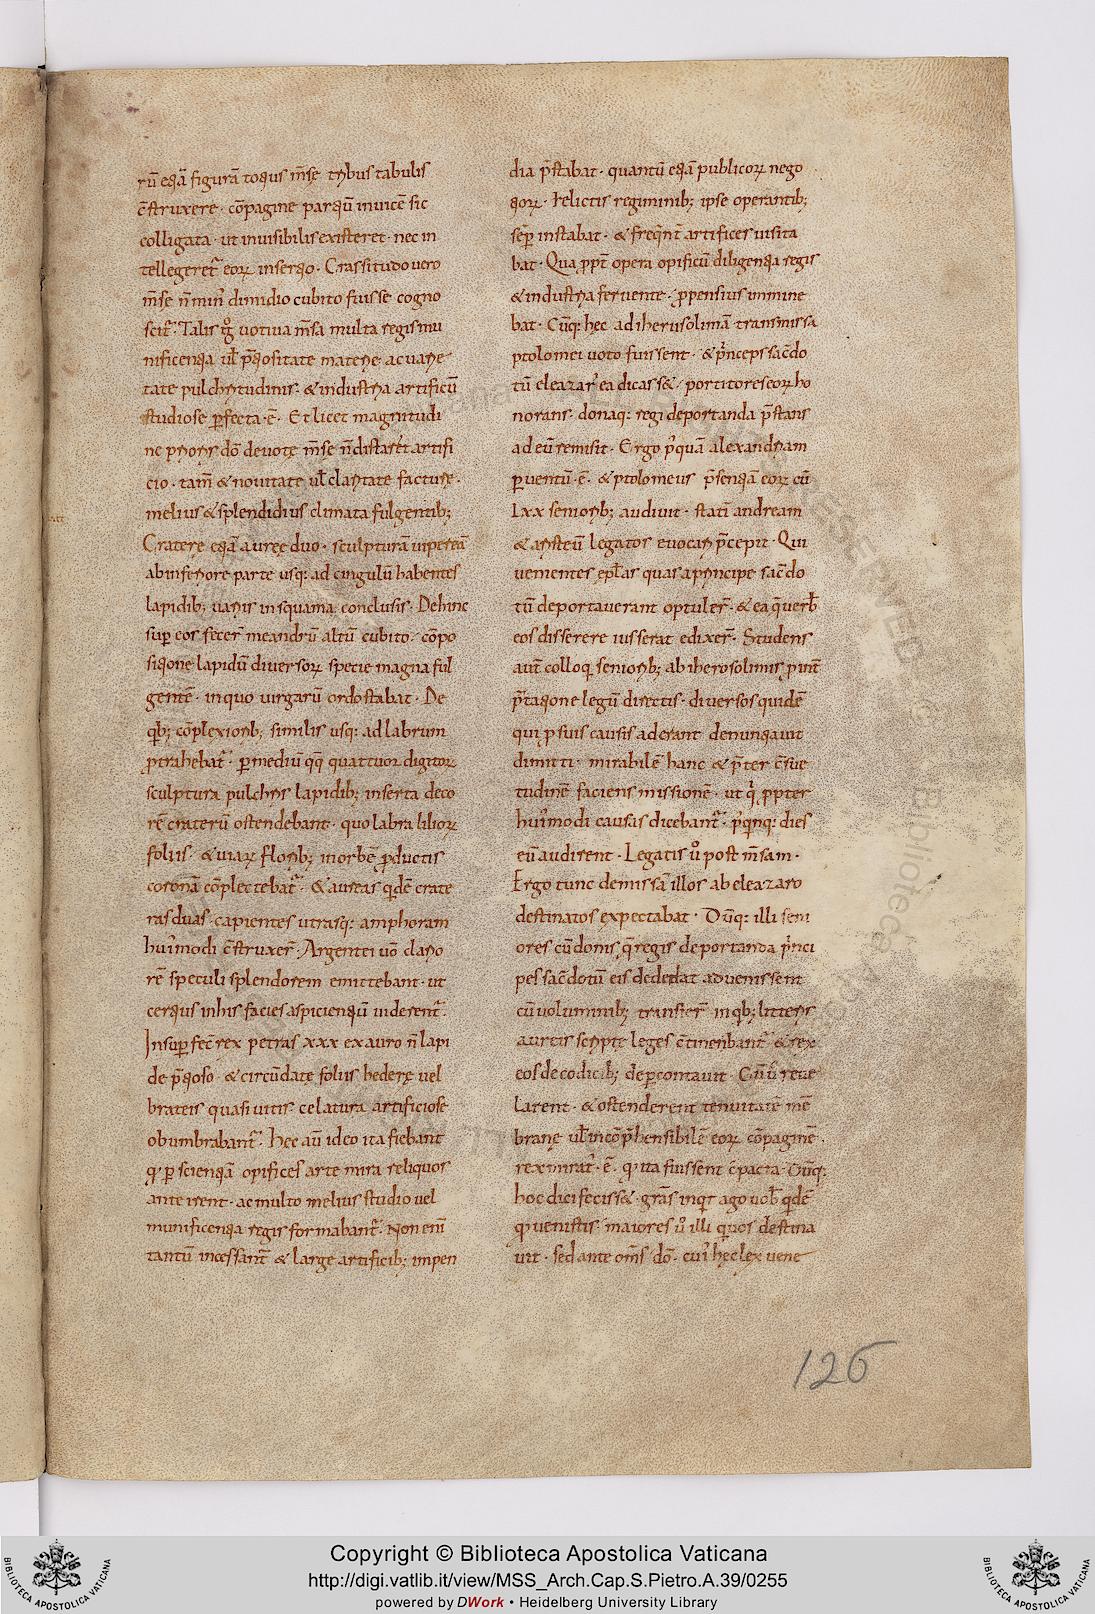 rū eqā figurā toqus m̄se tribus tabulis
c̄struxere · cōpagine parqū inuicē sic
colligata · ut inuisibilis existeret · nec in
tellegeret᷑ eoꝝ inserqo · Crassitudo uero
m̄se n̄ min᷒ dimidio cubito fuisse cogno
scit᷑ · Talis g᷒ uotiua m̄sa multa regis mu
nificenqa ul̄ p̄qositate materie ac uarie
tate pulchritudinis · & industria artificū
studiose ꝑfecta · ē · Et licet magnitudi
ne prioris dō deuotę m̄se n̄ distaret artifi
cio · tam̄ & nouitate ul̄ claritate facturę ·
melius & splendidius climata fulgentib;
Craterę eqā aureę duo · sculpturā uipereā
ab inferiore parte usq; ad cingulū habentes
lapidib; uariis in squama conclusis · Dehinc
suꝑ eos fecer̄ meandrū altū cubito · cōpo
siqone lapidū diuersoꝝ specie magna ful
gentē · in quo uirgarū ordo stabat · De
qb; cōplexiorib; similis usq; ad labrum
ꝓtrahebat᷑ · ꝑ mediū qq̄ quattuor digitoꝝ
sculptura pulchris lapidib; inserta deco
rē craterū ostendebant · quo labra lilioꝝ
foliis · & uiaꝝ florib; in orbē ꝓductis
coronā cōplectebat᷑ · & aureas qdē crate
ras duas · capientes utrasq; amphoram
hui᷒modi c̄struxer̄ · Argentei uō clario
rē speculi splendorem emittebant · ut
cerqus in his facies aspicienqū uiderent᷑ ·
Insuꝑ fec̄ rex petras xxx ex auro n̄ lapi
de p̄qoso · & circūdatę foliis hederę uel
brateis quasi uitis celatura artificiose
obumbrabant᷑ · Hec aū ideo ita fiebant
qꝫ ꝑ scienqā opifices arte mira reliquos
ante irent · ac multo melius studio uel
munificenqa regis formabant᷑ · Non eni
tantū incessant̄ & large artificib; impen
dia p̄stabat · quantū eqā publicoꝝ nego
qoꝝ · Relictis regiminib; ipse operantib;
seꝑ instabat · & freqn̄t artifices uisita
bat · Qua ꝓpt̄ opera opificū diligenqa regis
& industria feruente · ꝓpensius immine
bat · Cūq; hęc ad iherusolimā transmissa
ptolomei uoto fuissent · & p̄nceps sac̄do
tū eleazar᷒ ea dicass& · portitores eoꝝ ho
norans · donaq; regi deportanda p̄stans
ad eū remisit · Ergo p᷒quā alexandriam
ꝑuentū · ē · & ptolomeus p̄senqā eoꝝ cū
Lxx seniorib; audiuit · statī andream
& aristeū legatos euocari p̄cepit · Qui
uenientes epl̄as quas a principe sac̄do
tū deportauerant optuler̄ · & ea q̄ uerb̄
eos disserere iusserat edixer̄ · Studens
aut̄ colloq seniorib; ab iherosolimis ꝓ int̄
p̄taqone legū directis · diuersos quidē
qui ꝓ suis causis aderant denunqauit
dimitti · mirabilē hanc & p̄ter c̄sue
tudinē faciens missionē · ut q ꝓpter
hui᷒modi causas dicebant᷑ · p᷒ qnq; dies
eū audirent · Legatis u᷒ post m̄sam ·
Ergo tunc demissā illos ab eleazaro
destinatos expectabat · Dūq; illi seni
ores cū donis q̄ regis deportanda p̄nci
pes sac̄dotū eis dedederat aduenissent
cū uoluminib; transier̄ in qb; litteris
aureis scriptę leges c̄tinebant᷑ · & rex
eos de codicib; deꝑcontauit · reue
larent · & ostenderent tenuitatē mē
branę ul̄ incōp̄hensibilē eoꝝ cōpaginē ·
rex mirat᷒ · ē · qꝫ ita fuissent c̄pacta · Cūq;
hoc dici feciss& · grās inqt ago uob̄ qdē
qꝫ uenistis · maiores u᷒ illi quos destina
uit · sed ante om̄s dō · cui᷒ hęc lex uene
126
Copyright © Biblioteca Apostolica Vaticana
http://digi.vatlib.it/view/MSS_Arch.Cap.S.Pietro.A.39/0255
powered by DWork • Heidelberg University Library